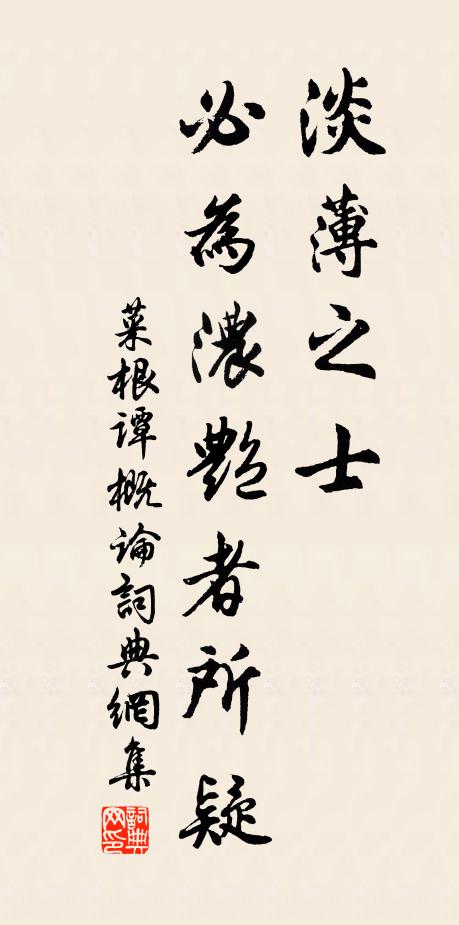 淡薄之士
必為濃艷者所疑
菜根譚概論詞典網集
詞典网印